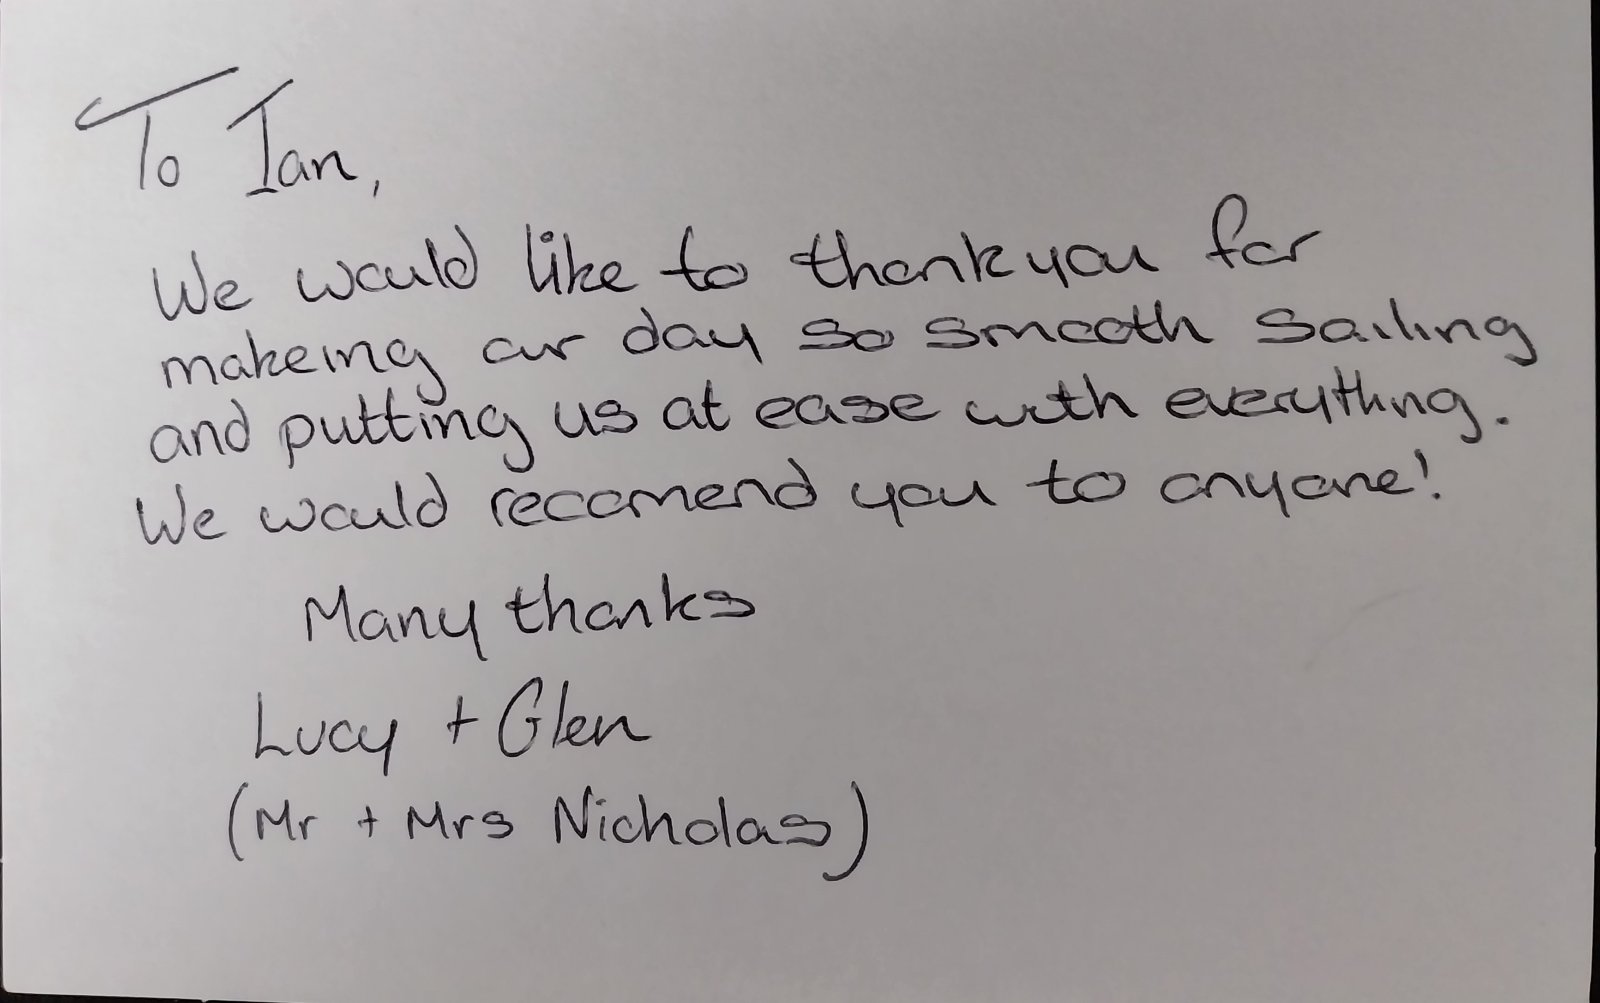 To Ian,
We would like to thankyou for
makeing our day so smooth sailing
and putting us at ease with everything.
We would reccomend you to anyone!
Many thanks
Lucy + Glen
(Mr + Mrs Nicholas)